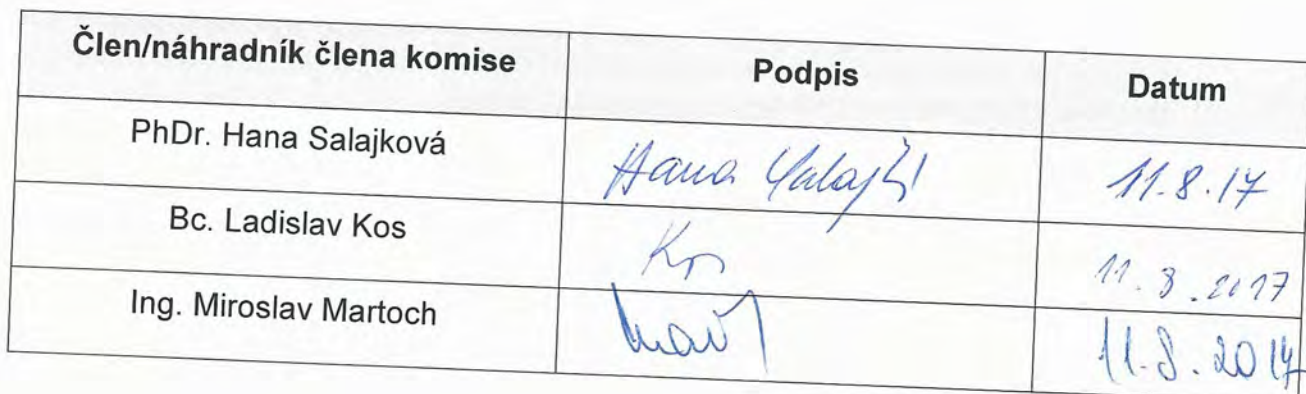 Člen/náhradník člena komise Podpis Datum
PhDr. Hana Salajková Hana 11.8.17
Bc. Ladislav Kos Kos 11.8.2017
Ing. Miroslav Martoch 11.8.2017